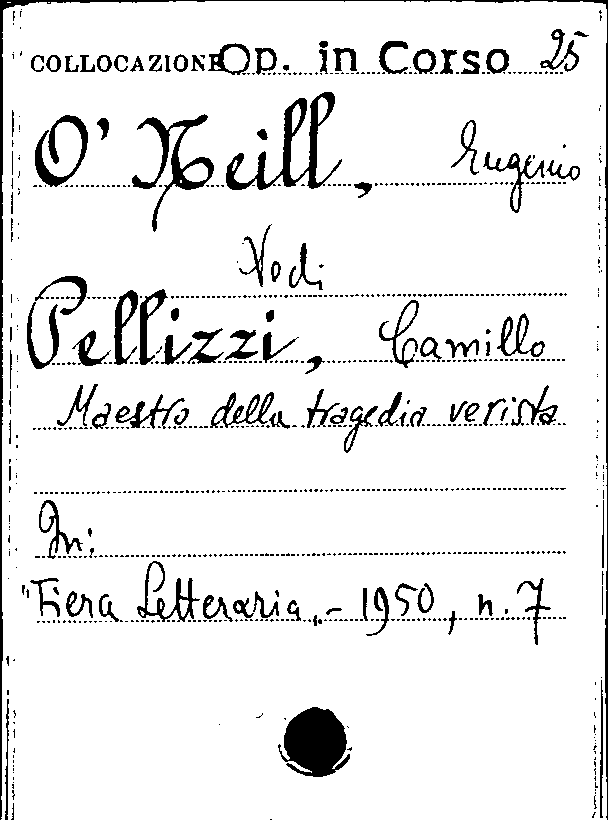 COLLOCAZIONE Op. in Corso 25
O' Neill, Eugenio
Vedi
Pellizzi, Camillo
Maestro della tragedia verista
In:
"Fiera Letteraria„ - 1950, n. 7